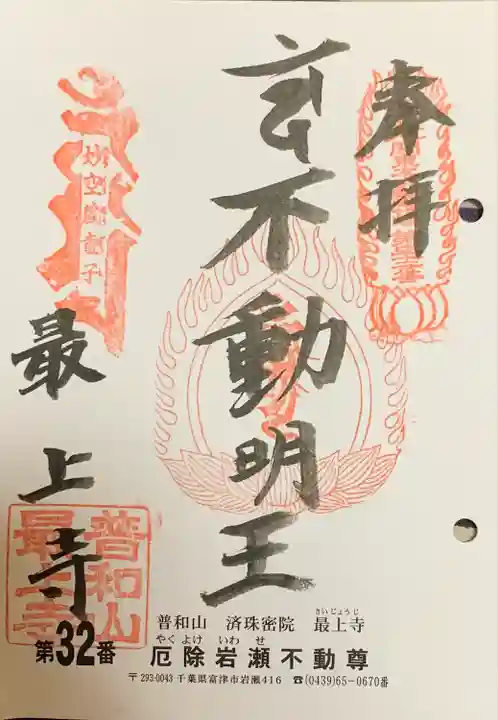 奉拝
不動明王
最上寺
普和山
最上寺
普和山 済珠密院 最上寺
さいじょうじ
第32番
やくよけ いわせ
厄除岩瀬不動尊
〒293-0043 千葉県富津市岩瀬416 ☎(0439)65-0670番